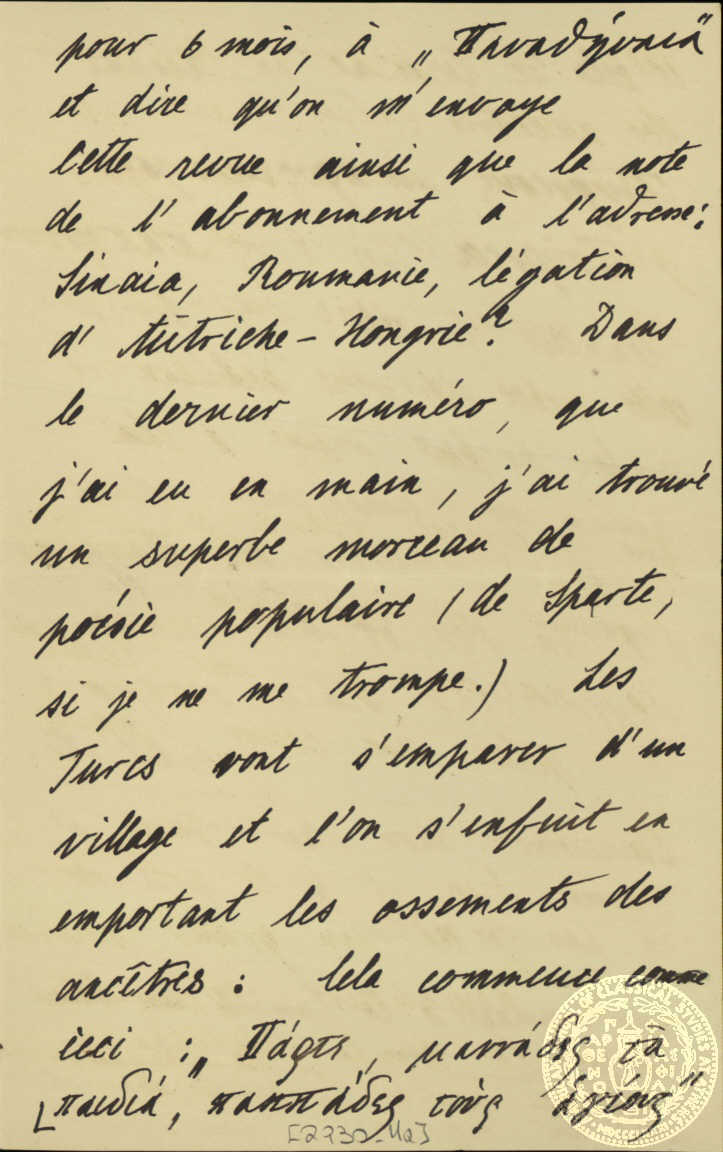 pour 6 mois, à „Παναθήναια"
et dire qu'on m'envoye
cette revue ainsi que la note
de l'abonnement à l'adresse:
Sinaia, Roumanie, légation
d'Autriche-Hongrie? Dans
le dernier numéro, que
j'ai eu en main, j'ai trouvé
un superbe morceau de
poésie populaire (de Sparte,
si je ne me trompe.) Les
Turcs vont s'emparer d'un
village et l'on s'enfuit en
emportant les ossements des
ancêtres: Cela commence comme
ici: „Πάρτε, μαννάδες τὰ
παιδιά, παππάδες τοὺς ἁγιούς"
[2730-Na]